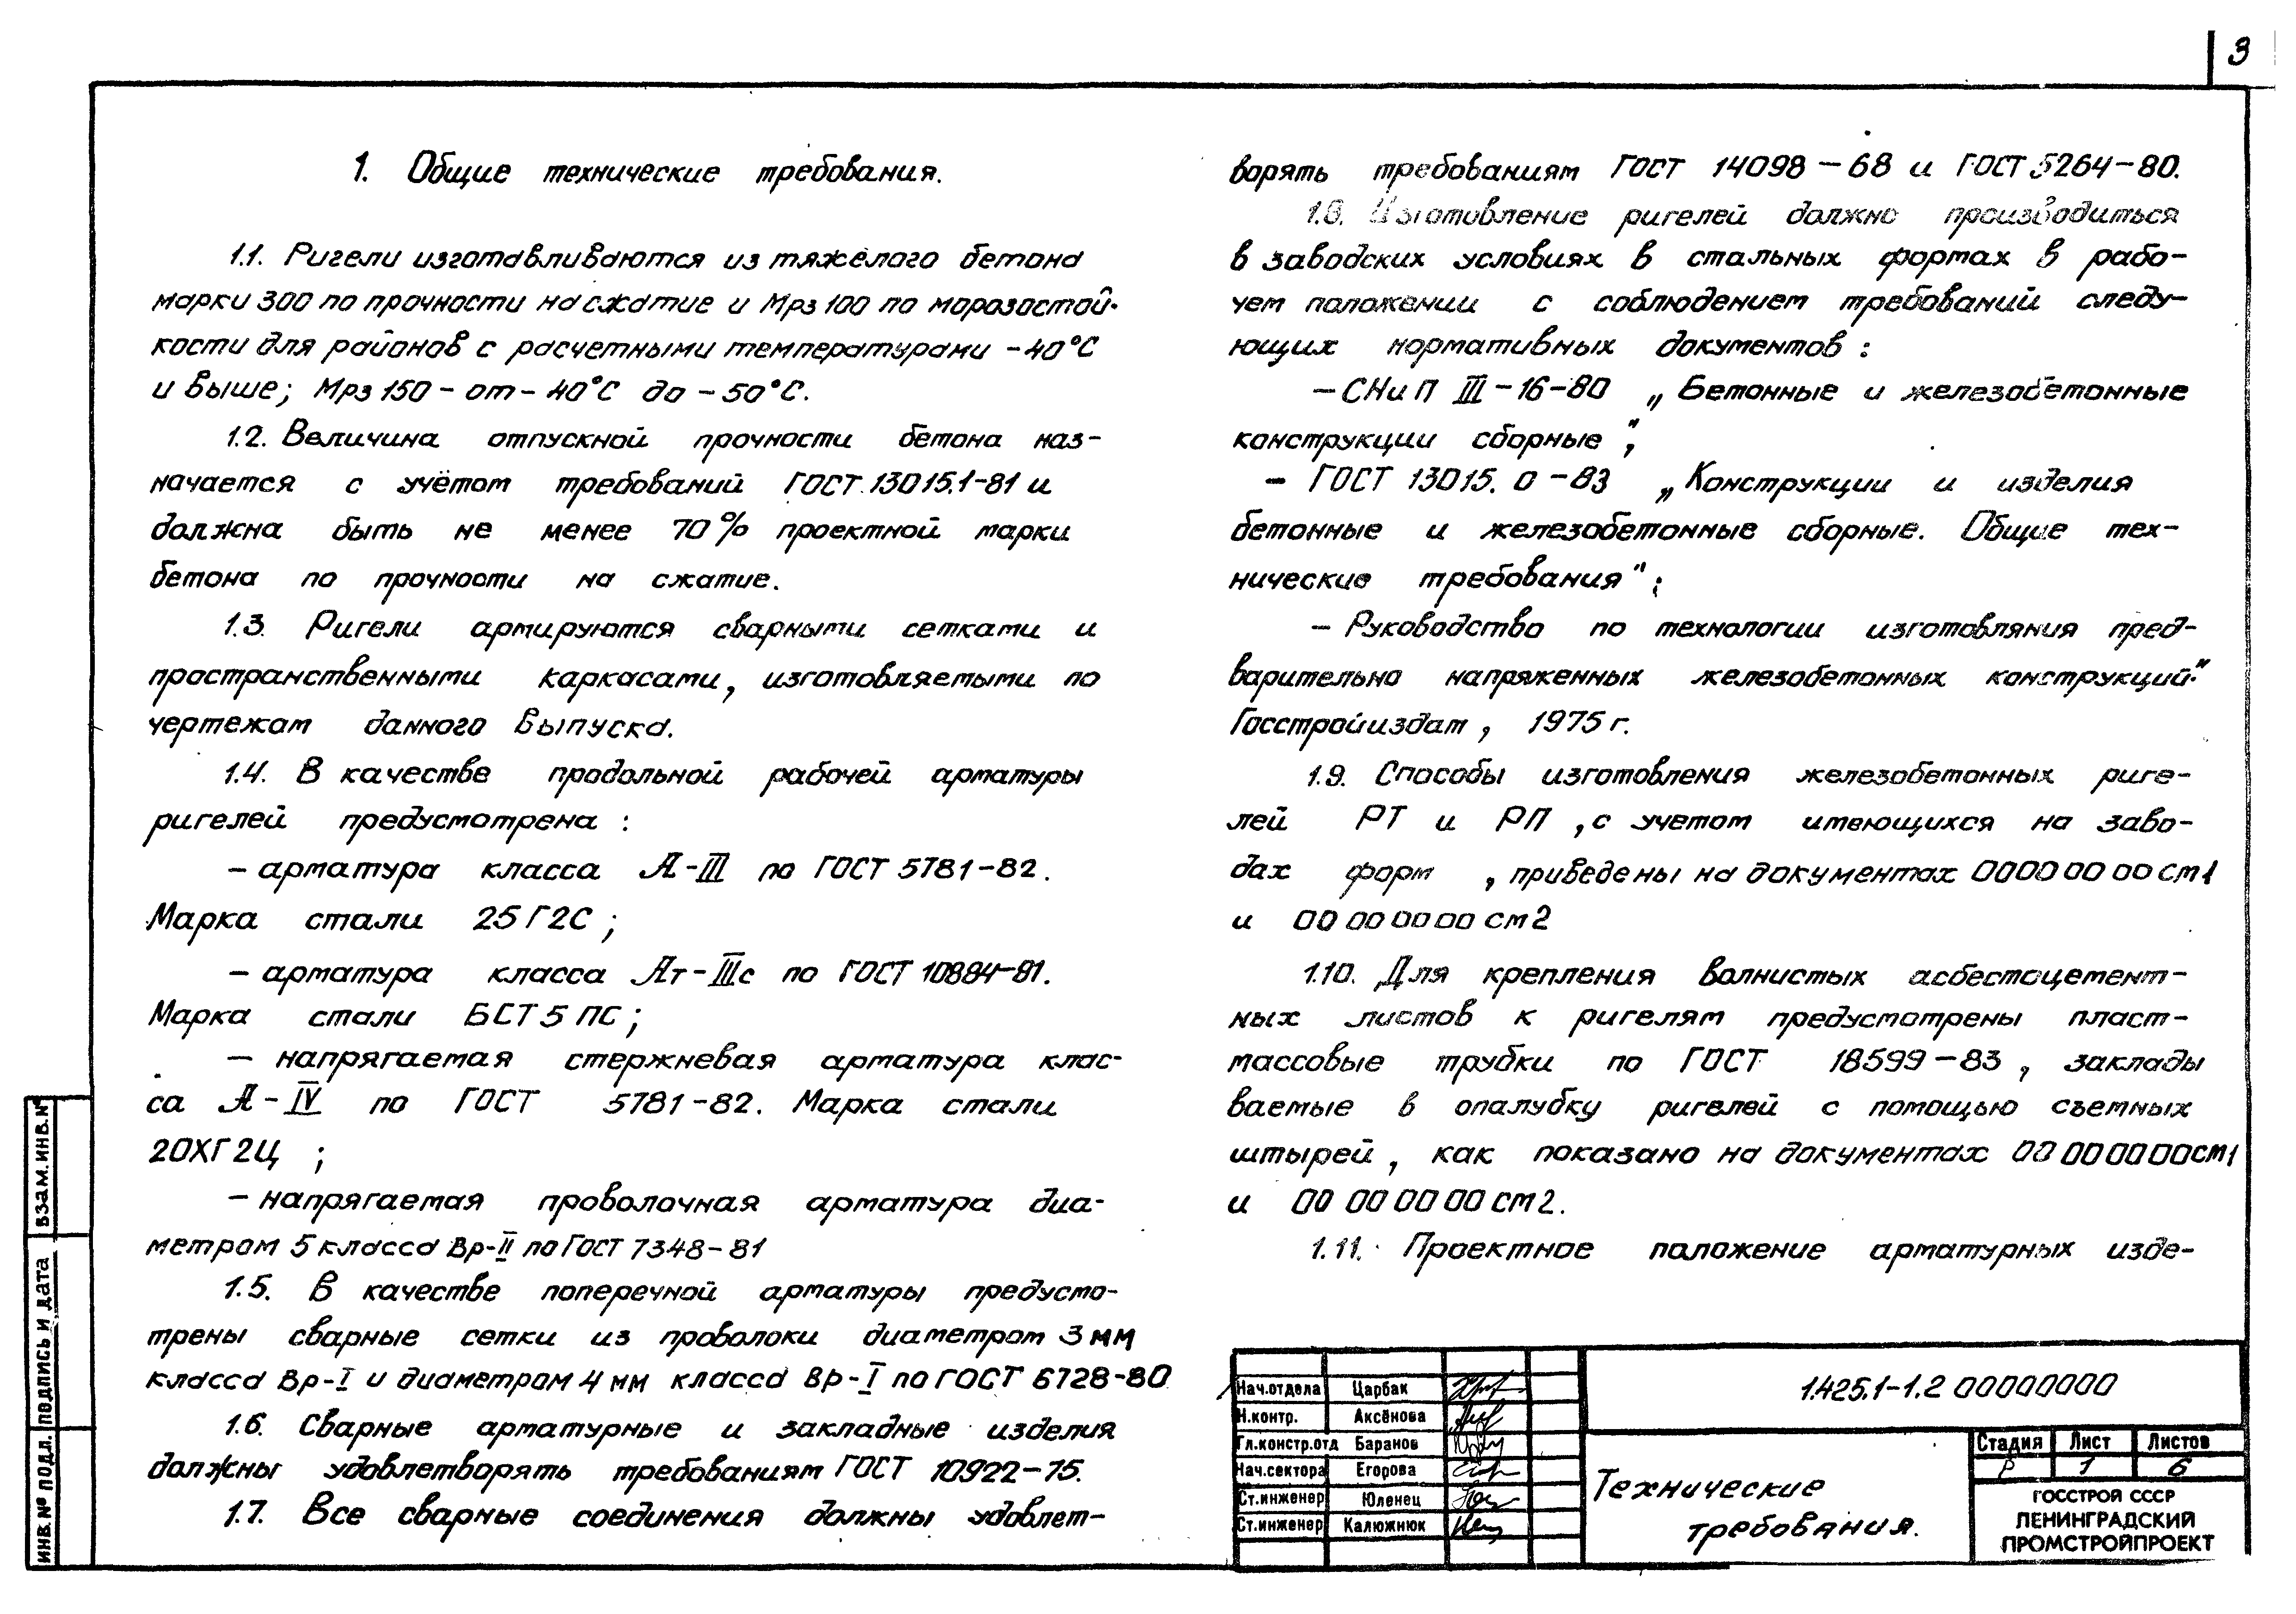 3
1. Общие технические требования.
1.1. Ригели изготавливаются из тяжёлого бетона
марки 300 по прочности на сжатие и Мрз 100 по морозостой-
кости для районов с расчетными температурами -40°С
и выше; Мрз 150 - от - 40°С до - 50°С.
1.2. Величина отпускной прочности бетона наз-
начается с учётом требований ГОСТ 13015.1-81 и
должна быть не менее 70% проектной марки
бетона по прочности на сжатие.
1.3. Ригели армируются сварными сетками и
пространственными каркасами, изготовляемыми по
чертежам данного выпуска.
1.4. В качестве продольной рабочей арматуры
ригелей предусмотрена :
- арматура класса А-III по ГОСТ 5781-82.
Марка стали 25Г2С ;
- арматура класса Ат-IIIс по ГОСТ 10884-81.
Марка стали БСТ5ПС ;
- напрягаемая стержневая арматура клас-
са А-IV по ГОСТ 5781-82. Марка стали
20ХГ2Ц ;
- напрягаемая проволочная арматура диа-
метром 5 класса Вр-II по ГОСТ 7348-81
1.5. В качестве поперечной арматуры предусмо-
трены сварные сетки из проволоки диаметром 3 мм
класса Вр-I и диаметром 4 мм класса Вр-I по ГОСТ 6728-80
1.6. Сварные арматурные и закладные изделия
должны удовлетворять требованиям ГОСТ 10922-75.
1.7. Все сварные соединения должны удовлет-
ворять требованиям ГОСТ 14098-68 и ГОСТ 5264-80.
1.8. Изготовление ригелей должно производиться
в заводских условиях в стальных формах в рабо-
чем положении с соблюдением требований следу-
ющих нормативных документов :
- СНиП III-16-80 „Бетонные и железобетонные
конструкции сборные";
- ГОСТ 13015.0-83 „Конструкции и изделия
бетонные и железобетонные сборные. Общие тех-
нические требования";
- Руководство по технологии изготовляния пред-
варительно напряженных железобетонных конструкций."
Госстройиздат, 1975 г.
1.9. Способы изготовления железобетонных риге-
лей РТ и РП, с учетом имеющихся на заво-
дах форм, приведены на документах 00000000СМ1
и 00000000СМ2
1.10. Для крепления волнистых асбестоцемент-
ных листов к ригелям предусмотрены пласт-
массовые трубки по ГОСТ 18599-83, заклады
ваемые в опалубку ригелей с помощью съемных
штырей, как показано на документах 00000000СМ1
и 00000000СМ2.
1.11. Проектное положение арматурных изде-
ВЗАМ.ИНВ.№
ПОДПИСЬ И ДАТА
ИНВ.№ ПОДЛ.
Нач.отдела Царбак
Н.контр. Аксёнова
Гл.констр.отд Баранов
Нач.сектора Егорова
Ст.инженер Юленец
Ст.инженер Калюжнюк
1.425.1-1.2 00000000
Технические
требования.
Стадия Лист Листов
Р 1 6
ГОССТРОЙ СССР
ЛЕНИНГРАДСКИЙ
ПРОМСТРОЙПРОЕКТ